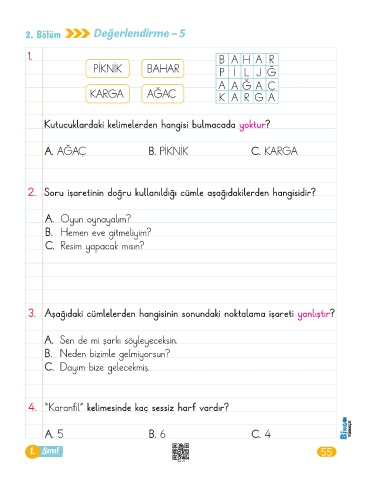 2. Bölüm Değerlendirme – 5
1.
PİKNİK BAHAR
KARGA AĞAÇ
B A H A R
P İ L J Ğ
A A Ğ A Ç
K A R G A
Kutucuklardaki kelimelerden hangisi bulmacada yoktur?
A. AĞAÇ B. PİKNİK C. KARGA
2. Soru işaretinin doğru kullanıldığı cümle aşağıdakilerden hangisidir?
A. Oyun oynayalım?
B. Hemen eve gitmeliyim?
C. Resim yapacak mısın?
3. Aşağıdaki cümlelerden hangisinin sonundaki noktalama işareti yanlıştır?
A. Sen de mi şarkı söyleyeceksin.
B. Neden bizimle gelmiyorsun?
C. Dayım bize gelecekmiş.
4. "Karanfil" kelimesinde kaç sessiz harf vardır?
A. 5 B. 6 C. 4
1. Sınıf
55